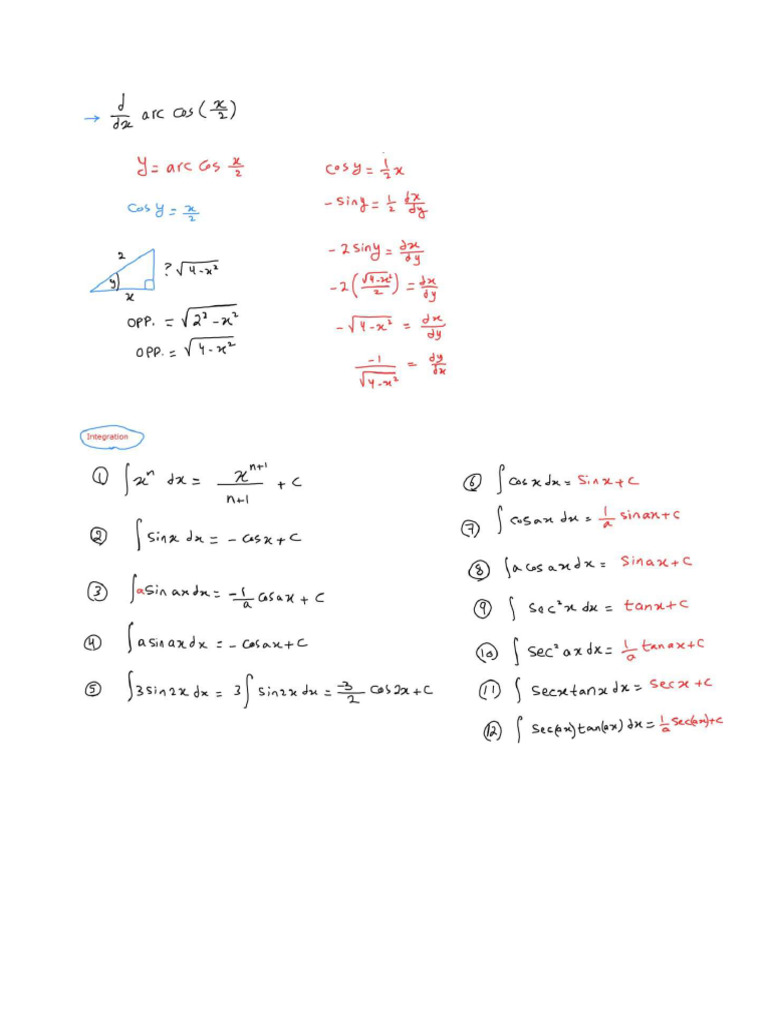 → d/dx arc cos(x/2)
y = arc cos x/2
cos y = x/2
2
y
x
? √(4-x²)
opp. = √(2² - x²)
opp. = √(4 - x²)
cos y = 1/2 x
- sin y = 1/2 dx/dy
- 2 sin y = dx/dy
- 2 (√(4-x²)/2) = dx/dy
- √(4-x²) = dx/dy
-1/√(4-x²) = dy/dx
Integration
① ∫ xⁿ dx = xⁿ⁺¹/(n+1) + c
② ∫ sin x dx = - cos x + c
③ ∫ a sin ax dx = -1/a cos ax + c
④ ∫ a sin ax dx = - cos ax + c
⑤ ∫ 3 sin 2x dx = 3 ∫ sin 2x dx = -3/2 cos 2x + c
⑥ ∫ cos x dx = sin x + c
⑦ ∫ cos ax dx = 1/a sin ax + c
⑧ ∫ a cos ax dx = sin ax + c
⑨ ∫ sec² x dx = tan x + c
⑩ ∫ sec² ax dx = 1/a tan ax + c
⑪ ∫ sec x tan x dx = sec x + c
⑫ ∫ sec(ax) tan(ax) dx = 1/a sec(ax) + c